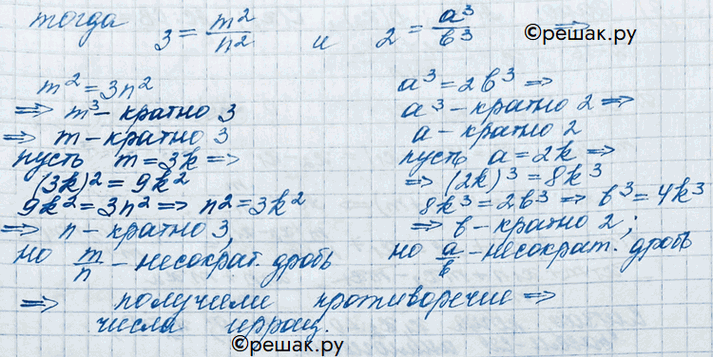 тогда 3 = m²/n² и 2 = a³/b³ ⇒
©решак.ру
©решак.ру
m² = 3n²
⇒ m³ - кратно 3
⇒ m - кратно 3
пусть m = 3k ⇒
(3k)² = 9k²
9k² = 3n² ⇒ n² = 3k²
⇒ n - кратно 3,
но m/n - несократ. дробь
a³ = 2b³ ⇒
a³ - кратно 2 ⇒
a - кратно 2
пусть a = 2k ⇒
⇒ (2k)³ = 8k³
8k³ = 2b³ ⇒ b³ = 4k³
⇒ b - кратно 2;
но a/b - несократ. дробь
⇒ получили противоречие ⇒
числа иррац.
©решак.ру